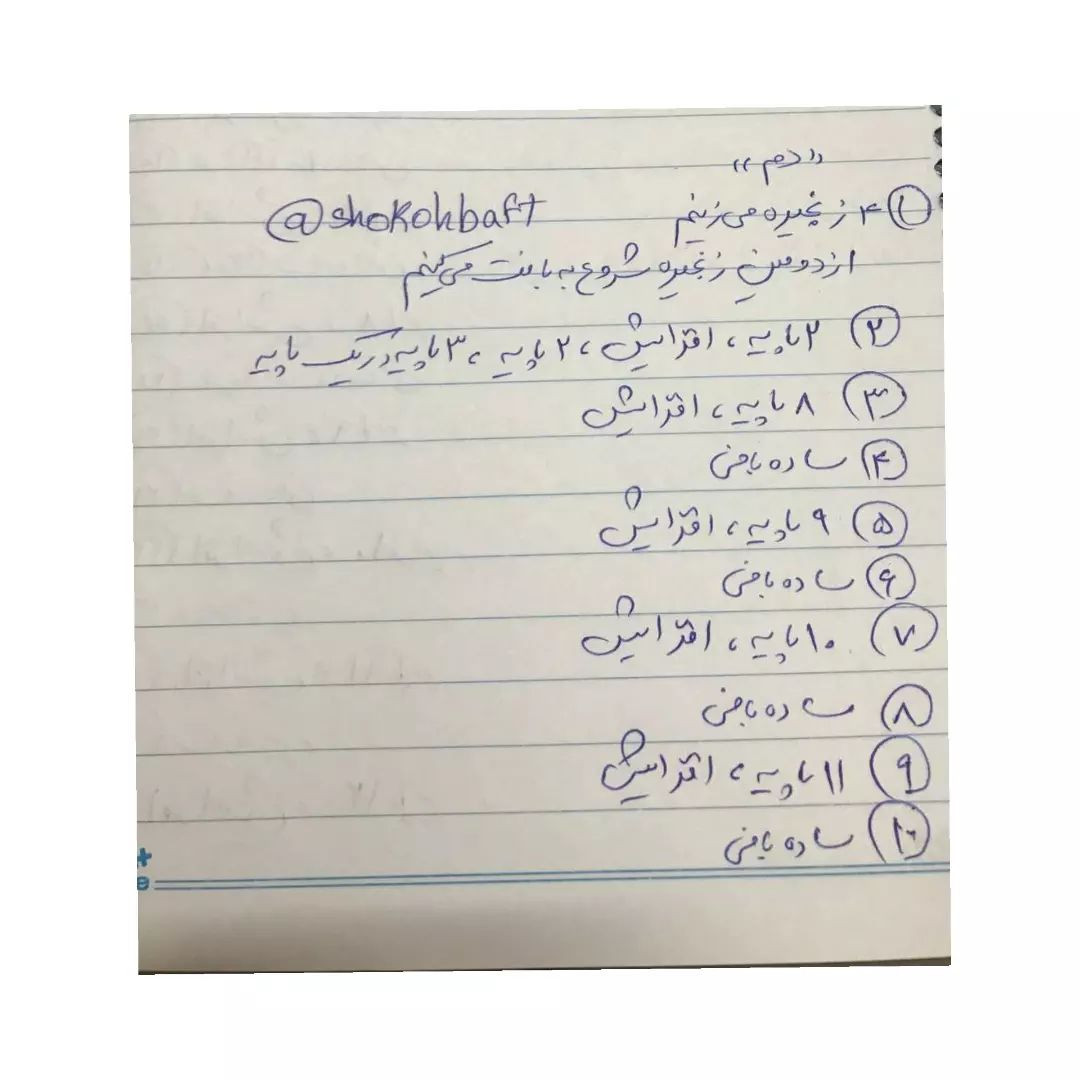 "دم"
① ۴ زنجیره می زنیم @shokohbaft
از دومین زنجیره شروع به بافت می کنیم
② ۲ پایه، افزایش، ۲ پایه، ۳ پایه در یک پایه
③ ۸ پایه، افزایش
④ ساده بافی
⑤ ۹ پایه، افزایش
⑥ ساده بافی
⑦ ۱۰ پایه، افزایش
⑧ ساده بافی
⑨ ۱۱ پایه، افزایش
⑩ ساده بافی